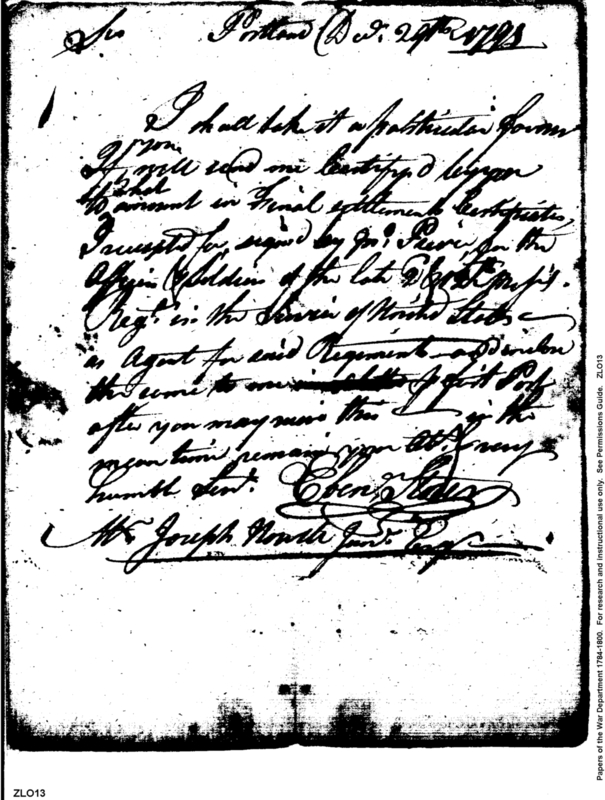 Sir Portland Decr. 29th 1795
I shall take it a particular favour
If you will send me Certify'd by you
To what amount in Final settlement Certificates,
I receipted for, signed by Jno. Peirce, for the
Officers & Soldiers of the late Masss.
Regt. in the Service of United States
as Agent for said Regiment and inclose
the same to me p first Post
after you may receive this in the
mean time remain your Obt. & very
humble Servt. Eben
Mr. Joseph Howell Junr. Esqr.
ZLO13
Papers of the War Department 1784-1800. For research and instructional use only. See Permissions Guide. ZLO13